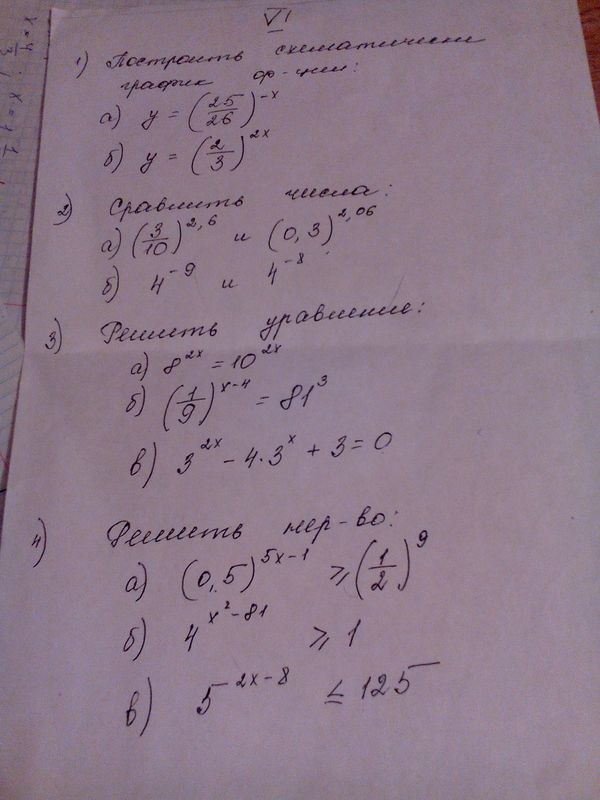 VI
1) Построить схематически
график ф-ции:
а) y = (25/26)^-x
б) y = (2/3)^2x
2) Сравнить числа:
а) (3/10)^2,6 и (0,3)^2,06
б) 4^-9 и 4^-8
3) Решить уравнение:
а) 8^2x = 10^2x
б) (1/9)^x-4 = 81^3
в) 3^2x - 4·3^x + 3 = 0
4) Решить нер-во:
а) (0,5)^5x-1 ⩾ (1/2)^9
б) 4^x²-81 ⩾ 1
в) 5^2x-8 ≤ 125